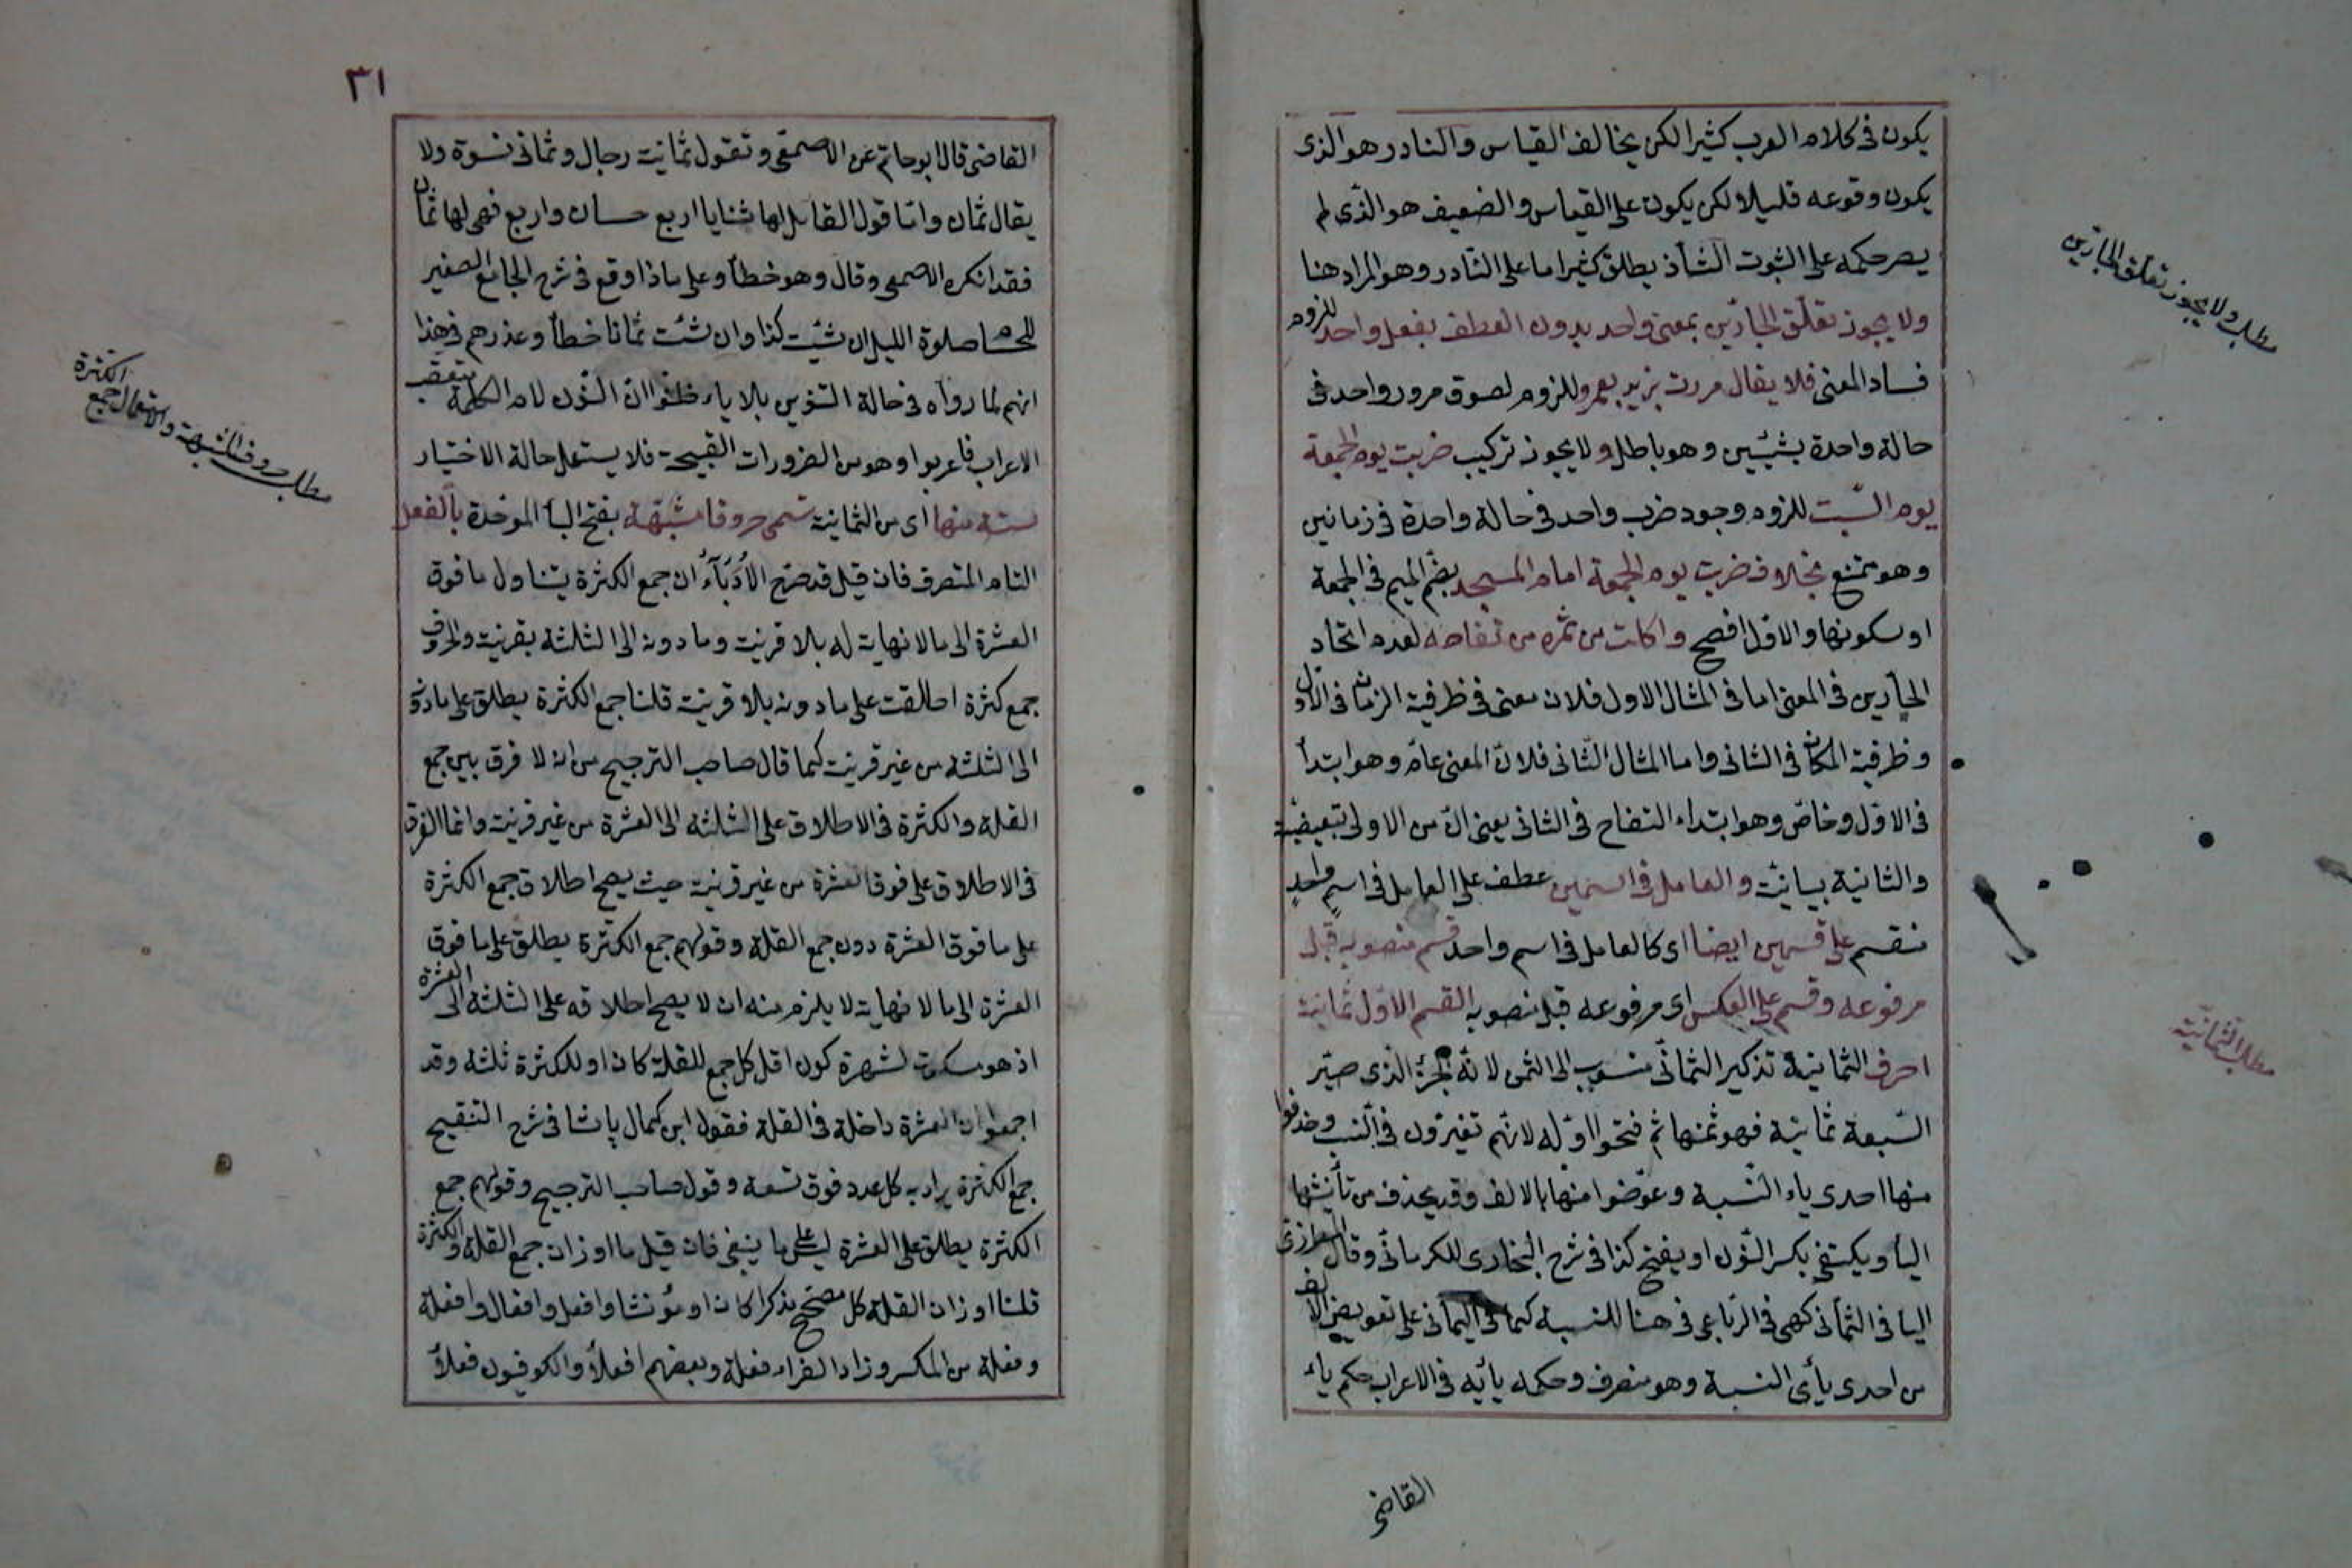 يكون فى كلام العرب كثيرا لكن يخالف القياس والنادر هو الذى
يكون وقوعه قليلا لكن يكون على القياس والضعيف هو الذى لم
يصر حكمه على الثبوت الشاذ يطلق كثيرا ما على النادر وهو المراد هنا
ولا يجوز تعلّق الجارّين بمعنى واحد بدون العطف بفعل واحد للزوم
فساد المعنى فلا يقال مررت بزيد بعمرو للزوم لصوق مرور واحد فى
حالة واحدة بشيئين وهو باطل ولا يجوز تركيب ضربت يوم الجمعة
يوم السّبت للزوم وجود ضرب واحد فى حالة واحدة فى زمانين
وهو ممتنع بخلاف ضربت يوم الجمعة امام المسجد بضم الميم فى الجمعة
او سكونها والاوّل افصح واكلت من ثمره من تفاحه لعدم اتحاد
الجارّين فى المعنى اما فى المثال الاول فلان معنى فى ظرفية الزمان فى الاوّل
وظرفية المكان فى الثانى واما المثال الثانى فلانّ المعنى عامّ وهو ابتدأ
فى الاوّل وخاصّ وهو ابتداء التفاح فى الثانى يعنى انّ من الاولى تبعيضيّة
والثانية بيانيّة والعامل فى اسمين عطف على العامل فى اسم واحد
منقسم على قسمين ايضا اى كالعامل فى اسم واحد قسم منصوبه قبل
مرفوعه وقسم على العكس اى مرفوعه قبل منصوبه القسم الاوّل ثمانية
احرف الثمانية تذكير الثمانى منسوب الى الثمن لانّه الجزء الذى صيّر
السّبعة ثمانية فهو ثمنها ثم فتحوا اوّله لانهم تغيّرون فى النّسب وحذفوا
منها احدى ياء النّسبة وعوّضوا منها بالالف وقد يحذف من تأنيثها
اليأ ويكتفى بكسر النّون او يفتح كذا فى شرح البخارى للكرمانى وقال
اليا فى الثمانى كهى فى الرّباعى فى هنا للنسبة كما فى اليمانى على تعويض الالف
من احدى يأى النسبة وهو منصرف وحكمه يائيه فى الاعراب حكم ياء
القاضى
مطلب ولا يجوز تعلّق الجارّين
مطلب الثمانيّة
٣١
القاضى قال ابو حاتم عن الاصمعى وتقول ثمانية رجال وثمانى نسوة ولا
يقال ثمان وامّا قول القائل لها ثنايا اربع حسان واربع فهى لها ثمان
فقد انكره الاصمعى وقال وهو خطأ وعلى ماذا وقع فى شرح الجامع الصغير
صلوة الليل ان شئت كذا وان شئت ثمانا خطأ وعذرهم فى هذا
انهم لما رواه فى حالة التنوين بلا ياء ظنّوا انّ النّون لام الكلمة
الاعراب فاعربوا وهو من الضرورات القبيحة فلا يستعمل حالة الاختيار
ستة منها اى من الثمانية تسمى حروفا مشبّهة بفتح البأ الموحّدة بالفعل
التام المتصرف فان قيل قد صرّح الأدبآء ان جمع الكثرة يتناول ما فوق
العشرة الى ما لا نهاية له بلا قرينة وما دونه الى الثلثة بقرينة والحروف
جمع كثرة اطلقت على ما دونه بلا قرينة قلنا جمع الكثرة يطلق على ما دونه
الى الثلثة من غير قرينة كما قال صاحب الترجيح من انه لا فرق بين جمع
القلة والكثرة فى الاطلاق على الثلثة الى العشرة من غير قرينة وانما الفرق
فى الاطلاق على فوق العشرة من غير قرينة حيث يصح اطلاق جمع الكثرة
على ما فوق العشرة دون جمع القلة وقولهم جمع الكثرة يطلق على ما فوق
العشرة الى ما لا نهاية لا يلزم منه ان لا يصح اطلاقه على الثلثة الى العشرة
اذ هو سكوت لشهرة كون اقل كل جمع للقلة كان او للكثرة ثلثة وقد
اجمعوا ان العشرة داخلة فى القلة فقول ابن كمال پاشا فى شرح التنقيح
جمع الكثرة يراد به كل عدد فوق تسعة وقول صاحب الترجيح وقولهم جمع
الكثرة يطلق على العشرة ليس على ما ينبغى فان قيل ما اوزان جمع القلة والكثرة
قلنا اوزان القلة كل مصحّح مذكرا كان او مؤنثا وافعل وافعال وافعلة
وفعلة من المكسر وزاد الفراء فعلة وبعضهم افعلأ والكوفيون فعلأ
مطلب حروف المشبهة والاستعمال جمع الكثرة